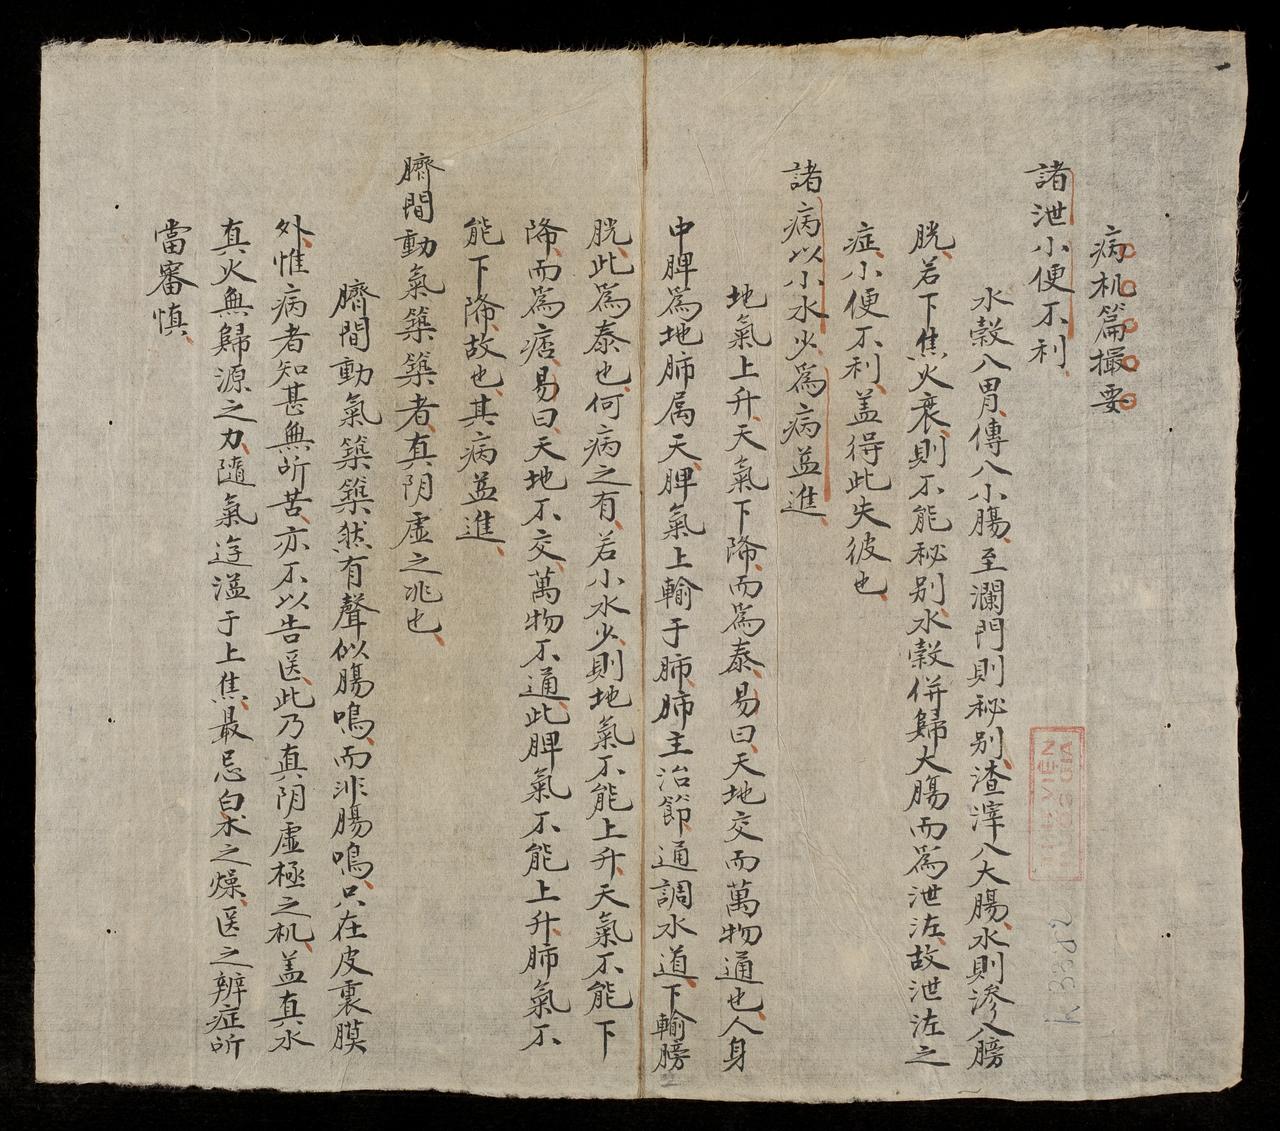 病机篇撮要
諸泄小便不利
水穀入胃傳入小膓至瀾門則秘别渣滓入大膓水則渗入膀
胱若下焦火衰則不能秘别水穀併歸大膓而爲泄泣故泄泣之
症小便不利盖得此失彼也
諸病以小水少爲病益進
地氣上升天氣下降而爲泰易曰天地交而萬物通也人身
中脾爲地肺属天脾氣上輸于肺肺主治節通調水道下輸膀
胱此爲泰也何病之有若小水少則地氣不能上升天氣不能下
降而爲痞易曰天地不交萬物不通此脾氣不能上升肺氣不
能下降故也其病益進
臍間動氣築築者真阴虚之兆也
臍間動氣築築然有聲似膓鳴而非膓鳴只在皮裏膜
外惟病者知甚無所苦亦不以告医此乃真阴虚極之机盖真水
真火無歸源之力隨氣逆溢于上焦最忌白术之燥医之辨症所
當審慎
THƯ VIỆN
QUỐC GIA